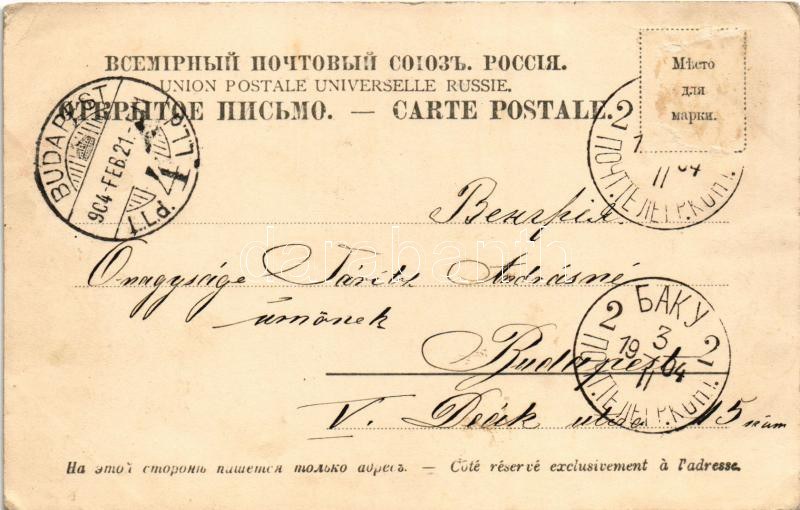 ВСЕМІРНЫЙ ПОЧТОВЫЙ СОЮЗЪ. РОССІЯ.
UNION POSTALE UNIVERSELLE RUSSIE.
ОТКРЫТОЕ ПИСЬМО. — CARTE POSTALE.
Мѣсто
для
марки.
BUDAPEST
904-FEB.21.
4
2
11 04
ПОЧ.ТЕЛЕГР.КОНТ.
Венгрія
darabanth
Onagysága Andrásné
Budapest
V. Deák utca 15 szám
БАКУ
2 3 2
19 04
II
ПОЧ.ТЕЛЕГР.КОНТ.
На этой сторонѣ пишется только адресъ. — Côté réservé exclusivement à l'adresse.